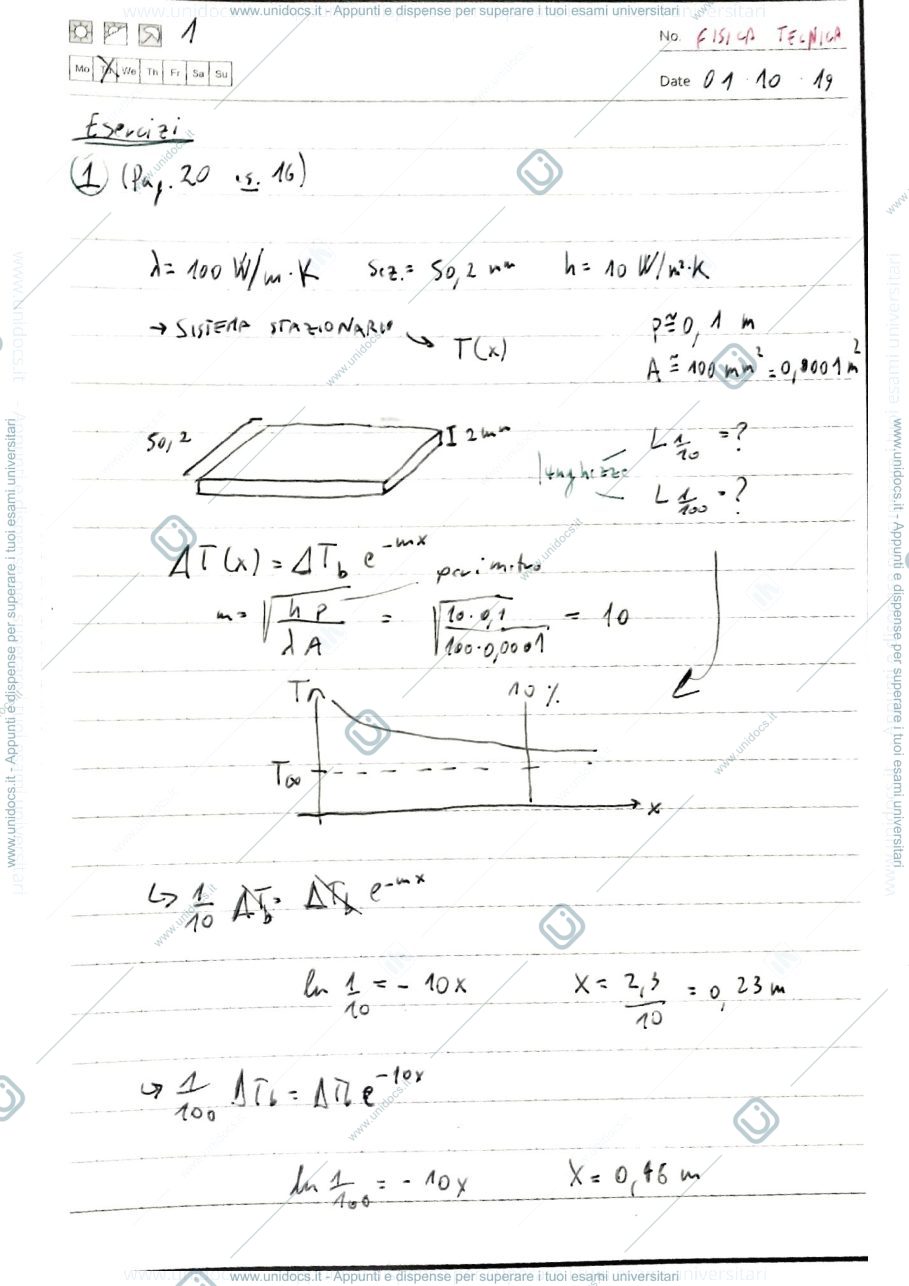 www.unidocs.it - Appunti e dispense per superare i tuoi esami universitari
1
No. FISICA TECNICA
Mo Tu We Th Fr Sa Su
Date 01 · 10 · 19
Esercizi
① (Pag. 20 es. 16)
λ = 100 W/m·K   sez. = 50, 2 mm   h = 10 W/m²·K
→ SISTEMA STAZIONARIO ↘ T(x)
p ≅ 0,1 m
A ≅ 100 mm² = 0,0001 m²
50, 2
2 mm
lunghezze
L 1/10 = ?
L 1/100 = ?
ΔT(x) = ΔT_b e^-mx
perimetro
m = √(h P / λ A) = √(10·0,1 / 100·0,0001) = 10
T
10 %
T∞
x
↳ 1/10 ΔT_b = ΔT_b e^-mx
ln 1/10 = - 10x   X = 2,3/10 = 0,23 m
↳ 1/100 ΔT_b = ΔT_b e^-10x
ln 1/100 = - 10x   X = 0,46 m
www.unidocs.it - Appunti e dispense per superare i tuoi esami universitari